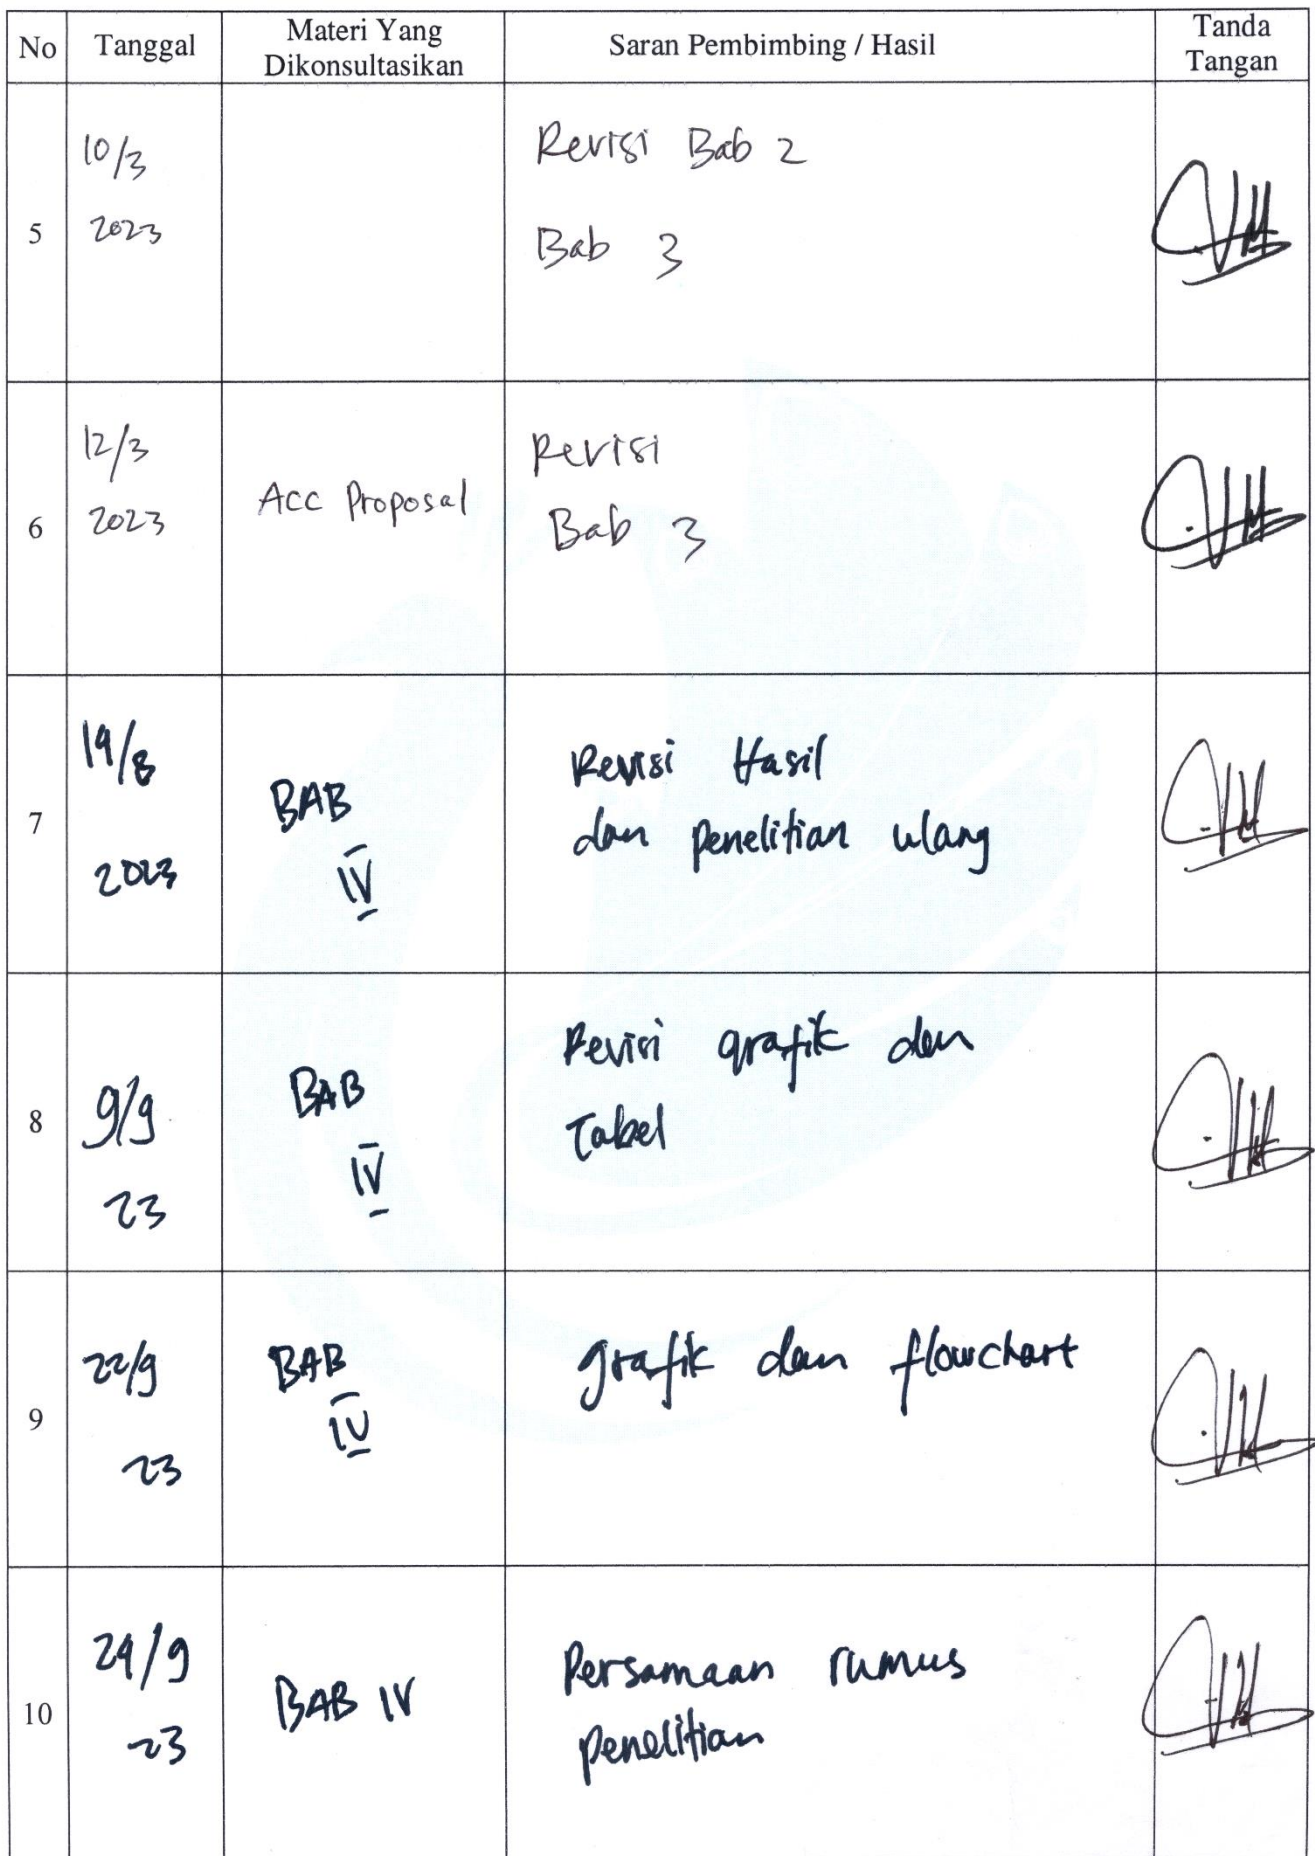 No Tanggal Materi Yang Dikonsultasikan Saran Pembimbing / Hasil Tanda Tangan
5
10/3
2023
Revisi Bab 2
Bab 3
6
12/3
2023
Acc Proposal
Revisi
Bab 3
7
19/8
2023
BAB
IV
Revisi Hasil
dan penelitian ulang
8
9/9
23
BAB
IV
Revisi grafik dan
Tabel
9
22/9
23
BAB
IV
grafik dan flowchart
10
29/9
23
BAB IV
Persamaan rumus
penelitian